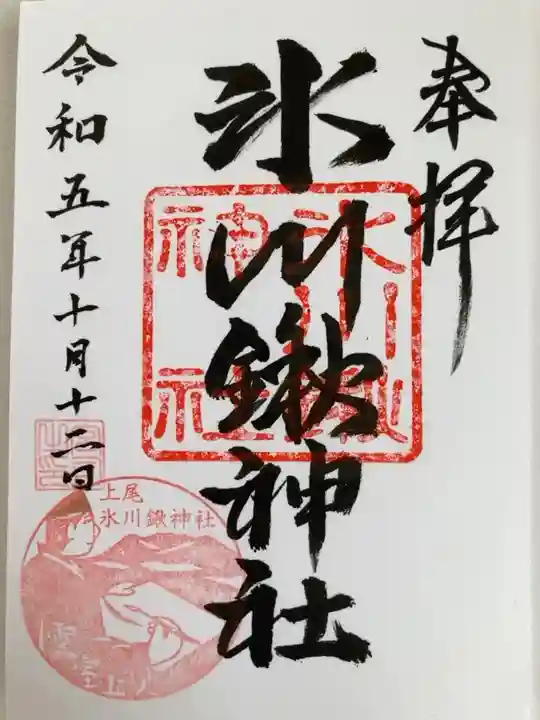 奉拝
氷川鍬神社
令和五年十月十二日
氷川鍬神社
上尾
氷川鍬神社